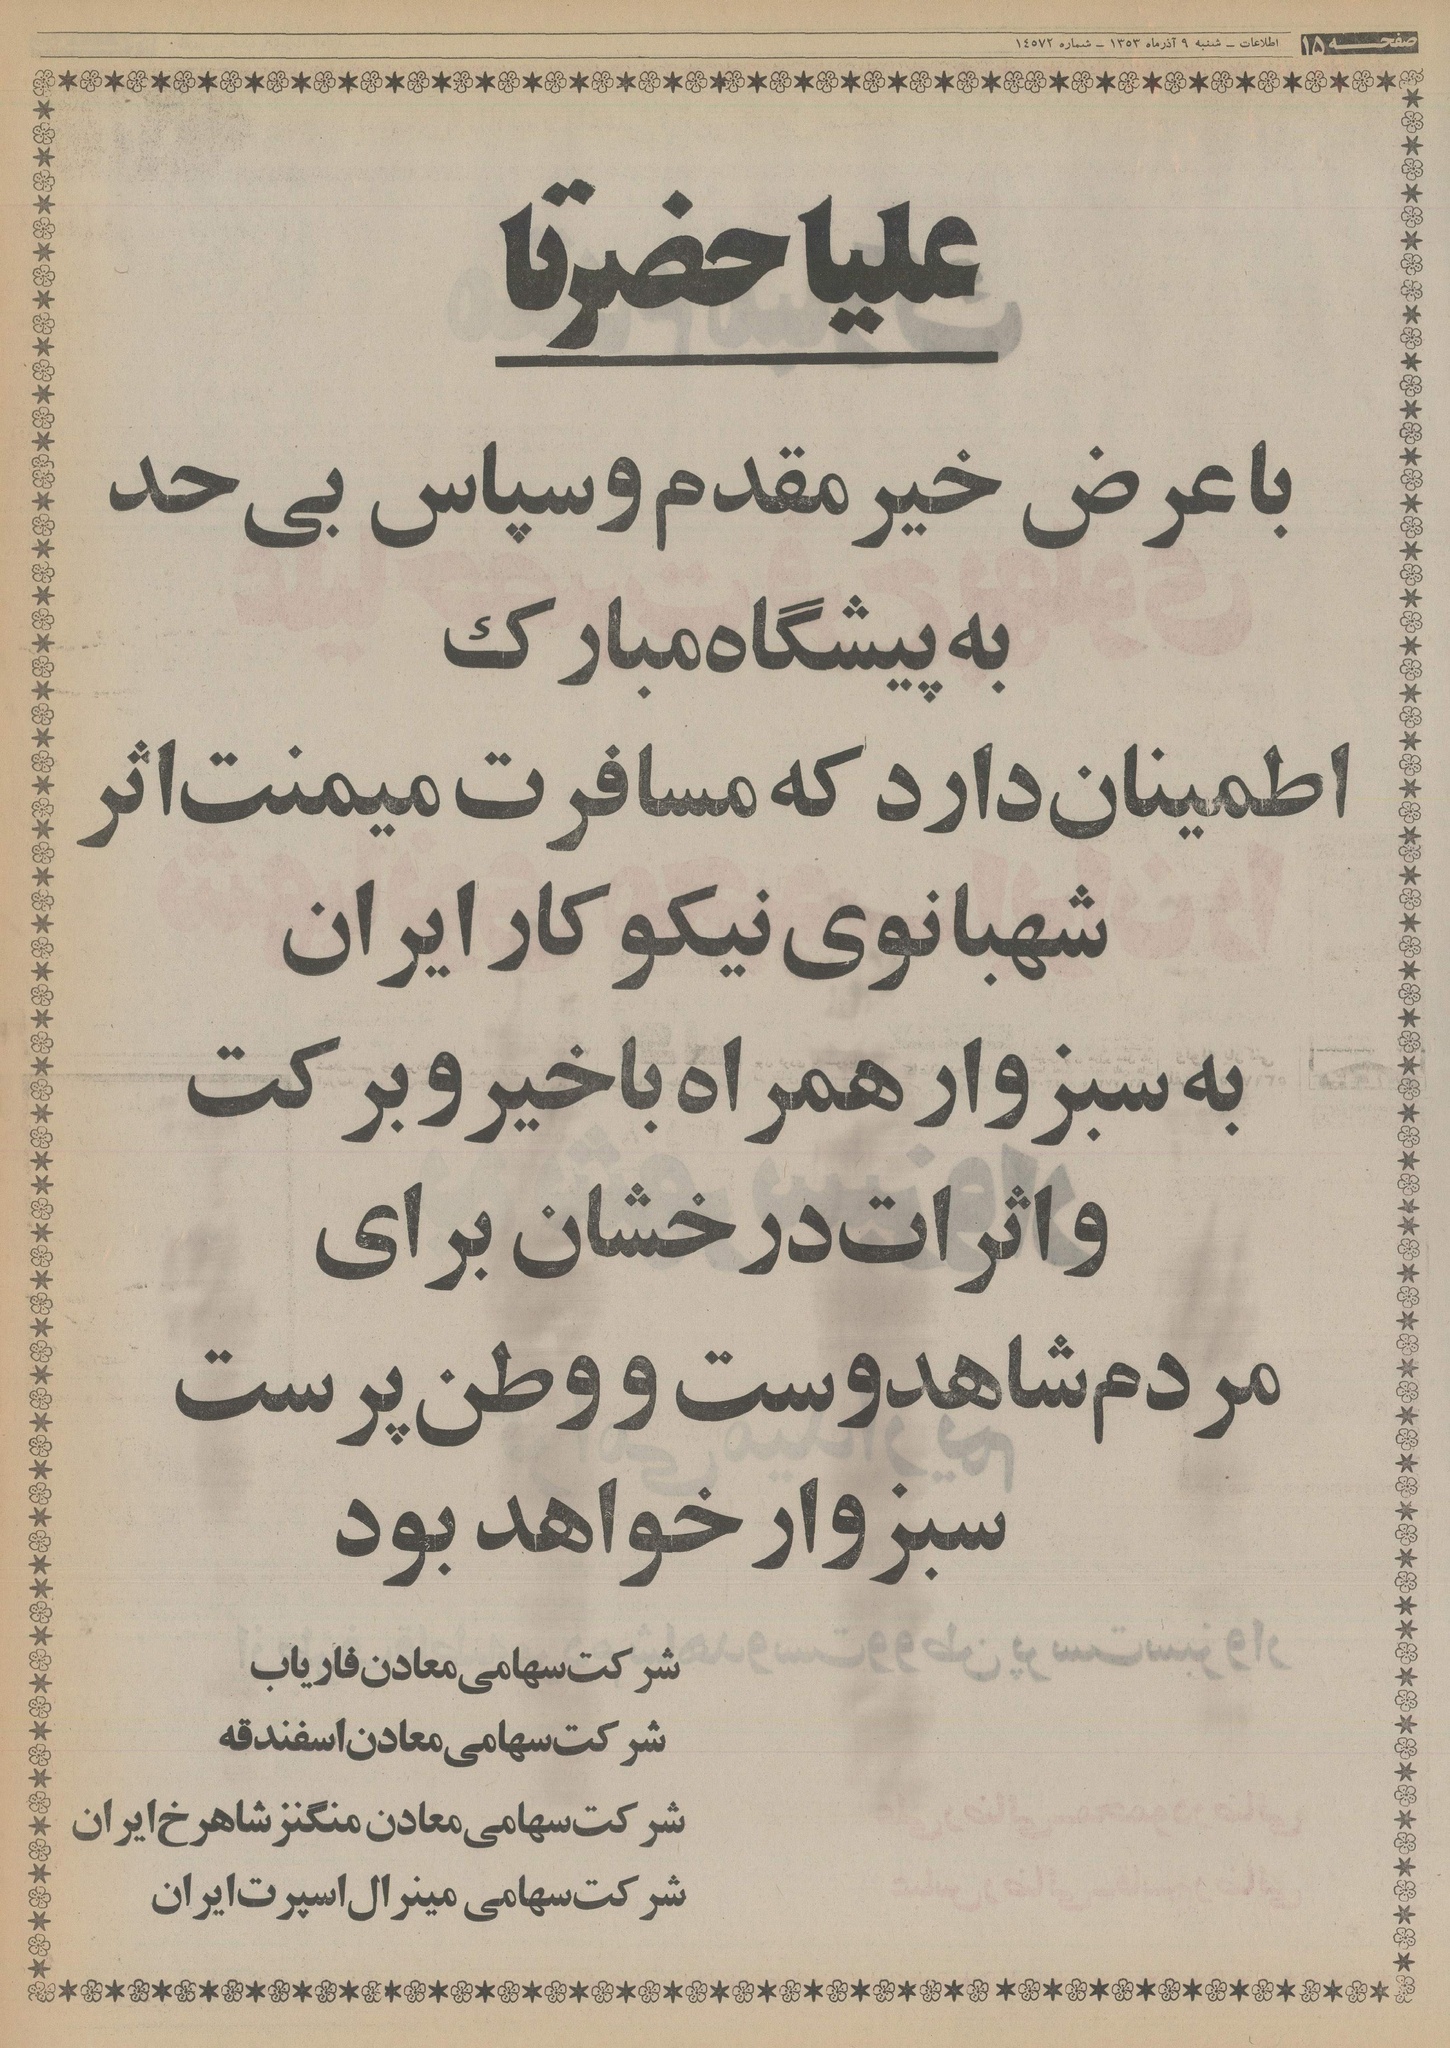 صفحه ۱۵
اطلاعات ــ شنبه ۹ آذرماه ۱۳۵۳ ــ شماره ۱٤۵۷۲
علیاحضرتا
باعرض خیر مقدم وسپاس بی حد
به پیشگاه مبارك
اطمینان دارد که مسافرت میمنت اثر
شهبانوی نیکو کار ایران
به سبزوار همراه باخیر و برکت
و اثرات درخشان برای
مردم شاهدوست و وطن پرست
سبزوار خواهد بود
شرکت سهامی معادن فاریاب
شرکت سهامی معادن اسفندقه
شرکت سهامی معادن منگنز شاهرخ ایران
شرکت سهامی مینرال اسپرت ایران